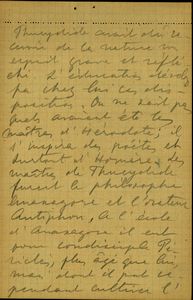 Thucydide avait donc
de la nature un
esprit grave et réflé
chi. L'éducation dévelop
pa chez lui ces dis
positions. On ne sait pas
quels avaient été les
maîtres d'Hérodote; il
s'inspira des poètes et
surtout d'Homère. Les
maîtres de Thucydide
furent le philosophe
Anaxagore et l'orateur
Antiphon, A l'école
d'Anaxagore il eut
pour condisciple Pé
riclès, plus âgé que lui
mais dont il put ce
pendant cultiver l'